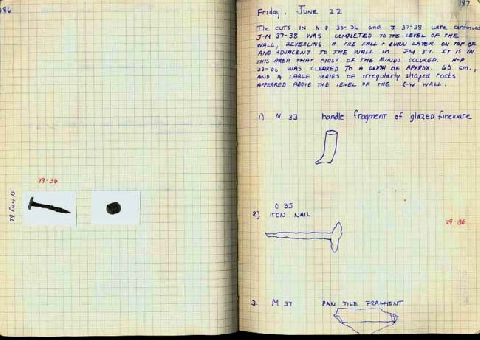 186
29-36
187
Friday, June 22
The cuts in N-P 35-36 and J 37-38 were continued
J-N 37-38 was completed to the level of the
wall, revealing a fire fall & burn layer on top of
and adjacent to the wall in It is in
this area that most of the finds occured.
35-36 was cleared to a depth of approx. 65 cm.,
and a large series of irregularly shaped rocks
appeared above the level of the E-W wall.
1) N 33 handle fragment of glazed fineware
O 35
2) Iron nail
29-36
3. M 37 Pan tile fragment